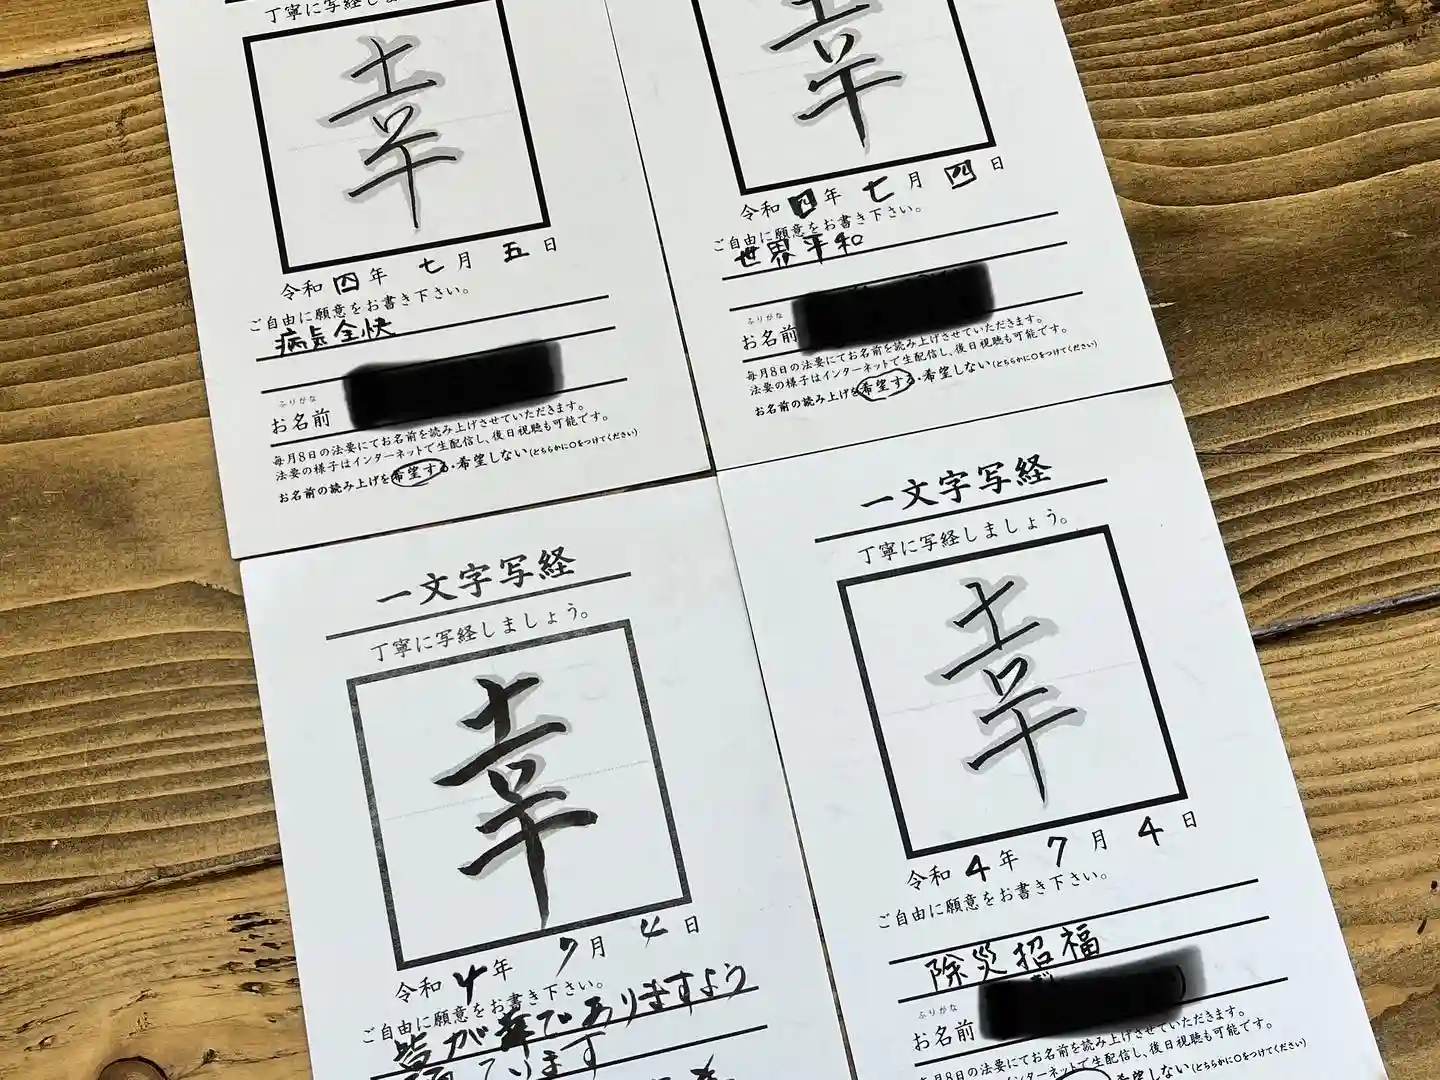 丁寧に写経しましょう。
幸
令和四年七月五日
ご自由に願意をお書き下さい。
病気全快
ふりがな
お名前
毎月8日の法要にてお名前を読み上げさせていただきます。
法要の様子はインターネットで生配信し、後日視聴も可能です。
お名前の読み上げを希望する・希望しない(どちらかに○をつけてください)
幸
令和四年七月四日
ご自由に願意をお書き下さい。
世界平和
ふりがな
お名前
毎月8日の法要にてお名前を読み上げさせていただきます。
法要の様子はインターネットで生配信し、後日視聴も可能です。
お名前の読み上げを希望する・希望しない(どちらかに○をつけてください)
一文字写経
丁寧に写経しましょう。
幸
令和4年7月4日
ご自由に願意をお書き下さい。
皆が幸でありますよう
ています
一文字写経
丁寧に写経しましょう。
幸
令和4年7月4日
ご自由に願意をお書き下さい。
除災招福
ふりがな
お名前
毎月8日の法要にてお名前を読み上げさせていただきます。
法要の様子はインターネットで生配信し、後日視聴も可能です。
希望しない(どちらかに○をつけてください)